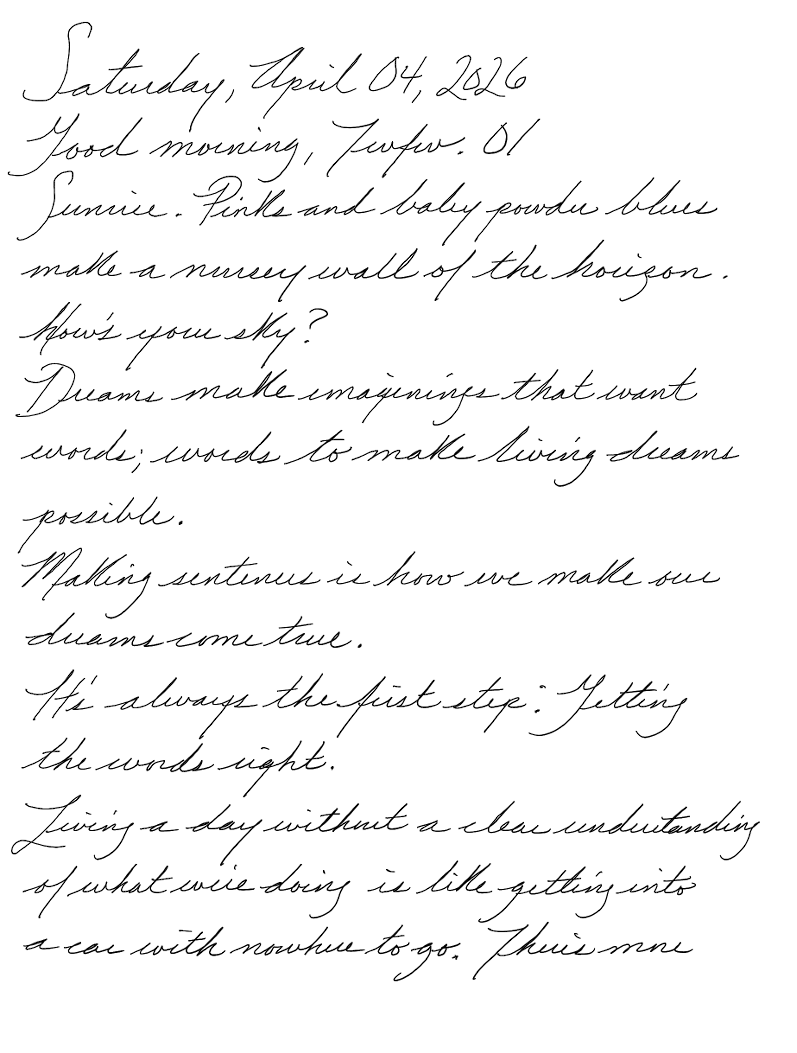 Saturday, April 04, 2026
Good morning, Twfw. 01
Sunrise. Pinks and baby powder blues
make a nursery wall of the horizon.
How's your sky?
Dreams make imaginings that want
words; words to make living dreams
possible.
Making sentences is how we make our
dreams come true.
It's always the first step: Getting
the words right.
Living a day without a clear understanding
of what we're doing is like getting into
a car with nowhere to go. There's more